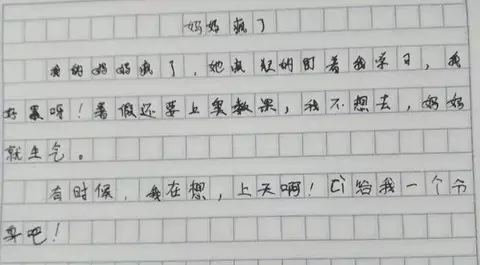 妈妈疯了
我的妈妈疯了，她疯狂的盯着我学习，我
好累呀！暑假还要上奥数课，我不想去，妈妈
就生气。
有时候，我在想，上天啊！Cì给我一个令
吧！